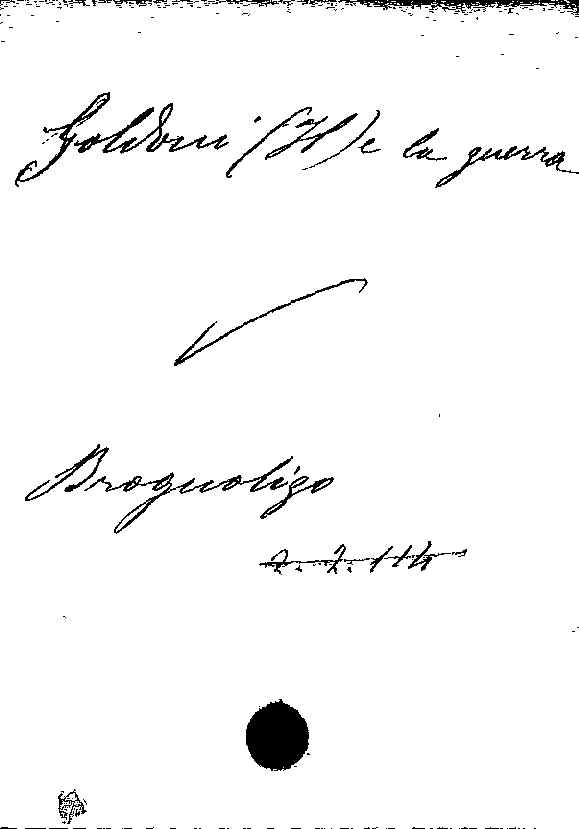 Goldoni (Il) e la guerra
Brognoligo
2. 2. 114